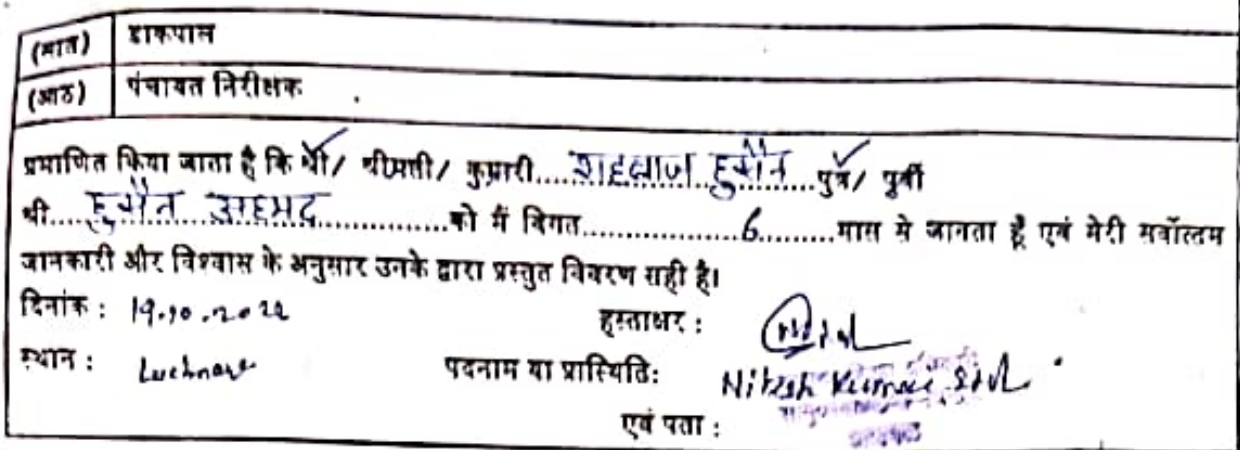 (सात) डाकपाल
(आठ) पंचायत निरीक्षक
प्रमाणित किया जाता है कि श्री/ श्रीमती/ कुमारी....शहबाज हुसैन....पुत्र/ पुत्री
श्री....हुसैन अहमद....को मैं विगत....6....मास से जानता हूँ एवं मेरी सर्वोत्तम
जानकारी और विश्वास के अनुसार उनके द्वारा प्रस्तुत विवरण सही है।
दिनांक : 19.10.2022 हस्ताक्षर :
स्थान : Lucknow पदनाम या प्रास्थिति: Nitesh Kumar
एवं पता :